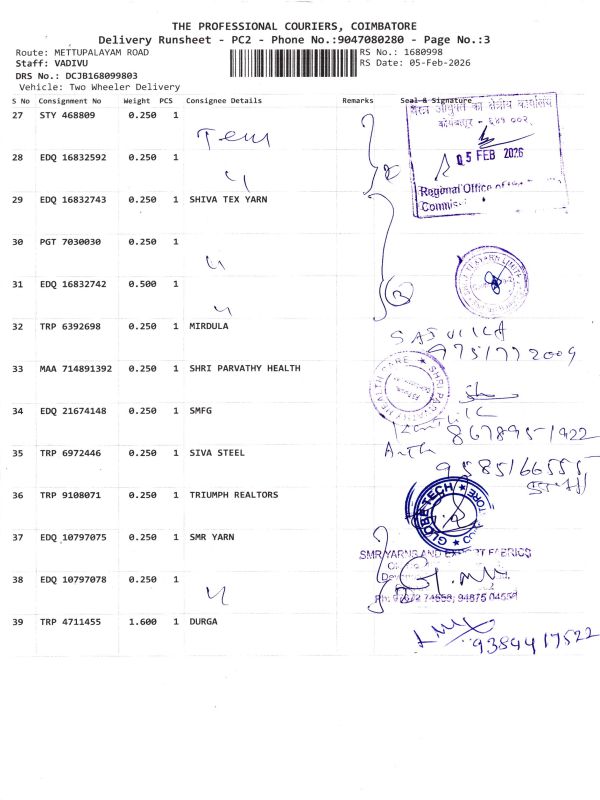 THE PROFESSIONAL COURIERS, COIMBATORE
Delivery Runsheet - PC2 - Phone No.:9047080280 - Page No.:3
Route: METTUPALAYAM ROAD
RS No.: 1680998
Staff: VADIVU
RS Date: 05-Feb-2026
DRS No.: DCJB168099803
Vehicle: Two Wheeler Delivery
S No Consignment No Weight PCS Consignee Details Remarks Seal & Signature
27 STY 468809 0.250 1
28 EDQ 16832592 0.250 1
05 FEB 2026
Regional Office of
29 EDQ 16832743 0.250 1 SHIVA TEX YARN
30 PGT 7030030 0.250 1
31 EDQ 16832742 0.500 1
32 TRP 6392698 0.250 1 MIRDULA
9751772009
33 MAA 714891392 0.250 1 SHRI PARVATHY HEALTH
34 EDQ 21674148 0.250 1 SMFG
35 TRP 6972446 0.250 1 SIVA STEEL
36 TRP 9108071 0.250 1 TRIUMPH REALTORS
GLOBE TECH
37 EDQ 10797075 0.250 1 SMR YARN
SMR YARNS AND
38 EDQ 10797078 0.250 1
39 TRP 4711455 1.600 1 DURGA
9384417522